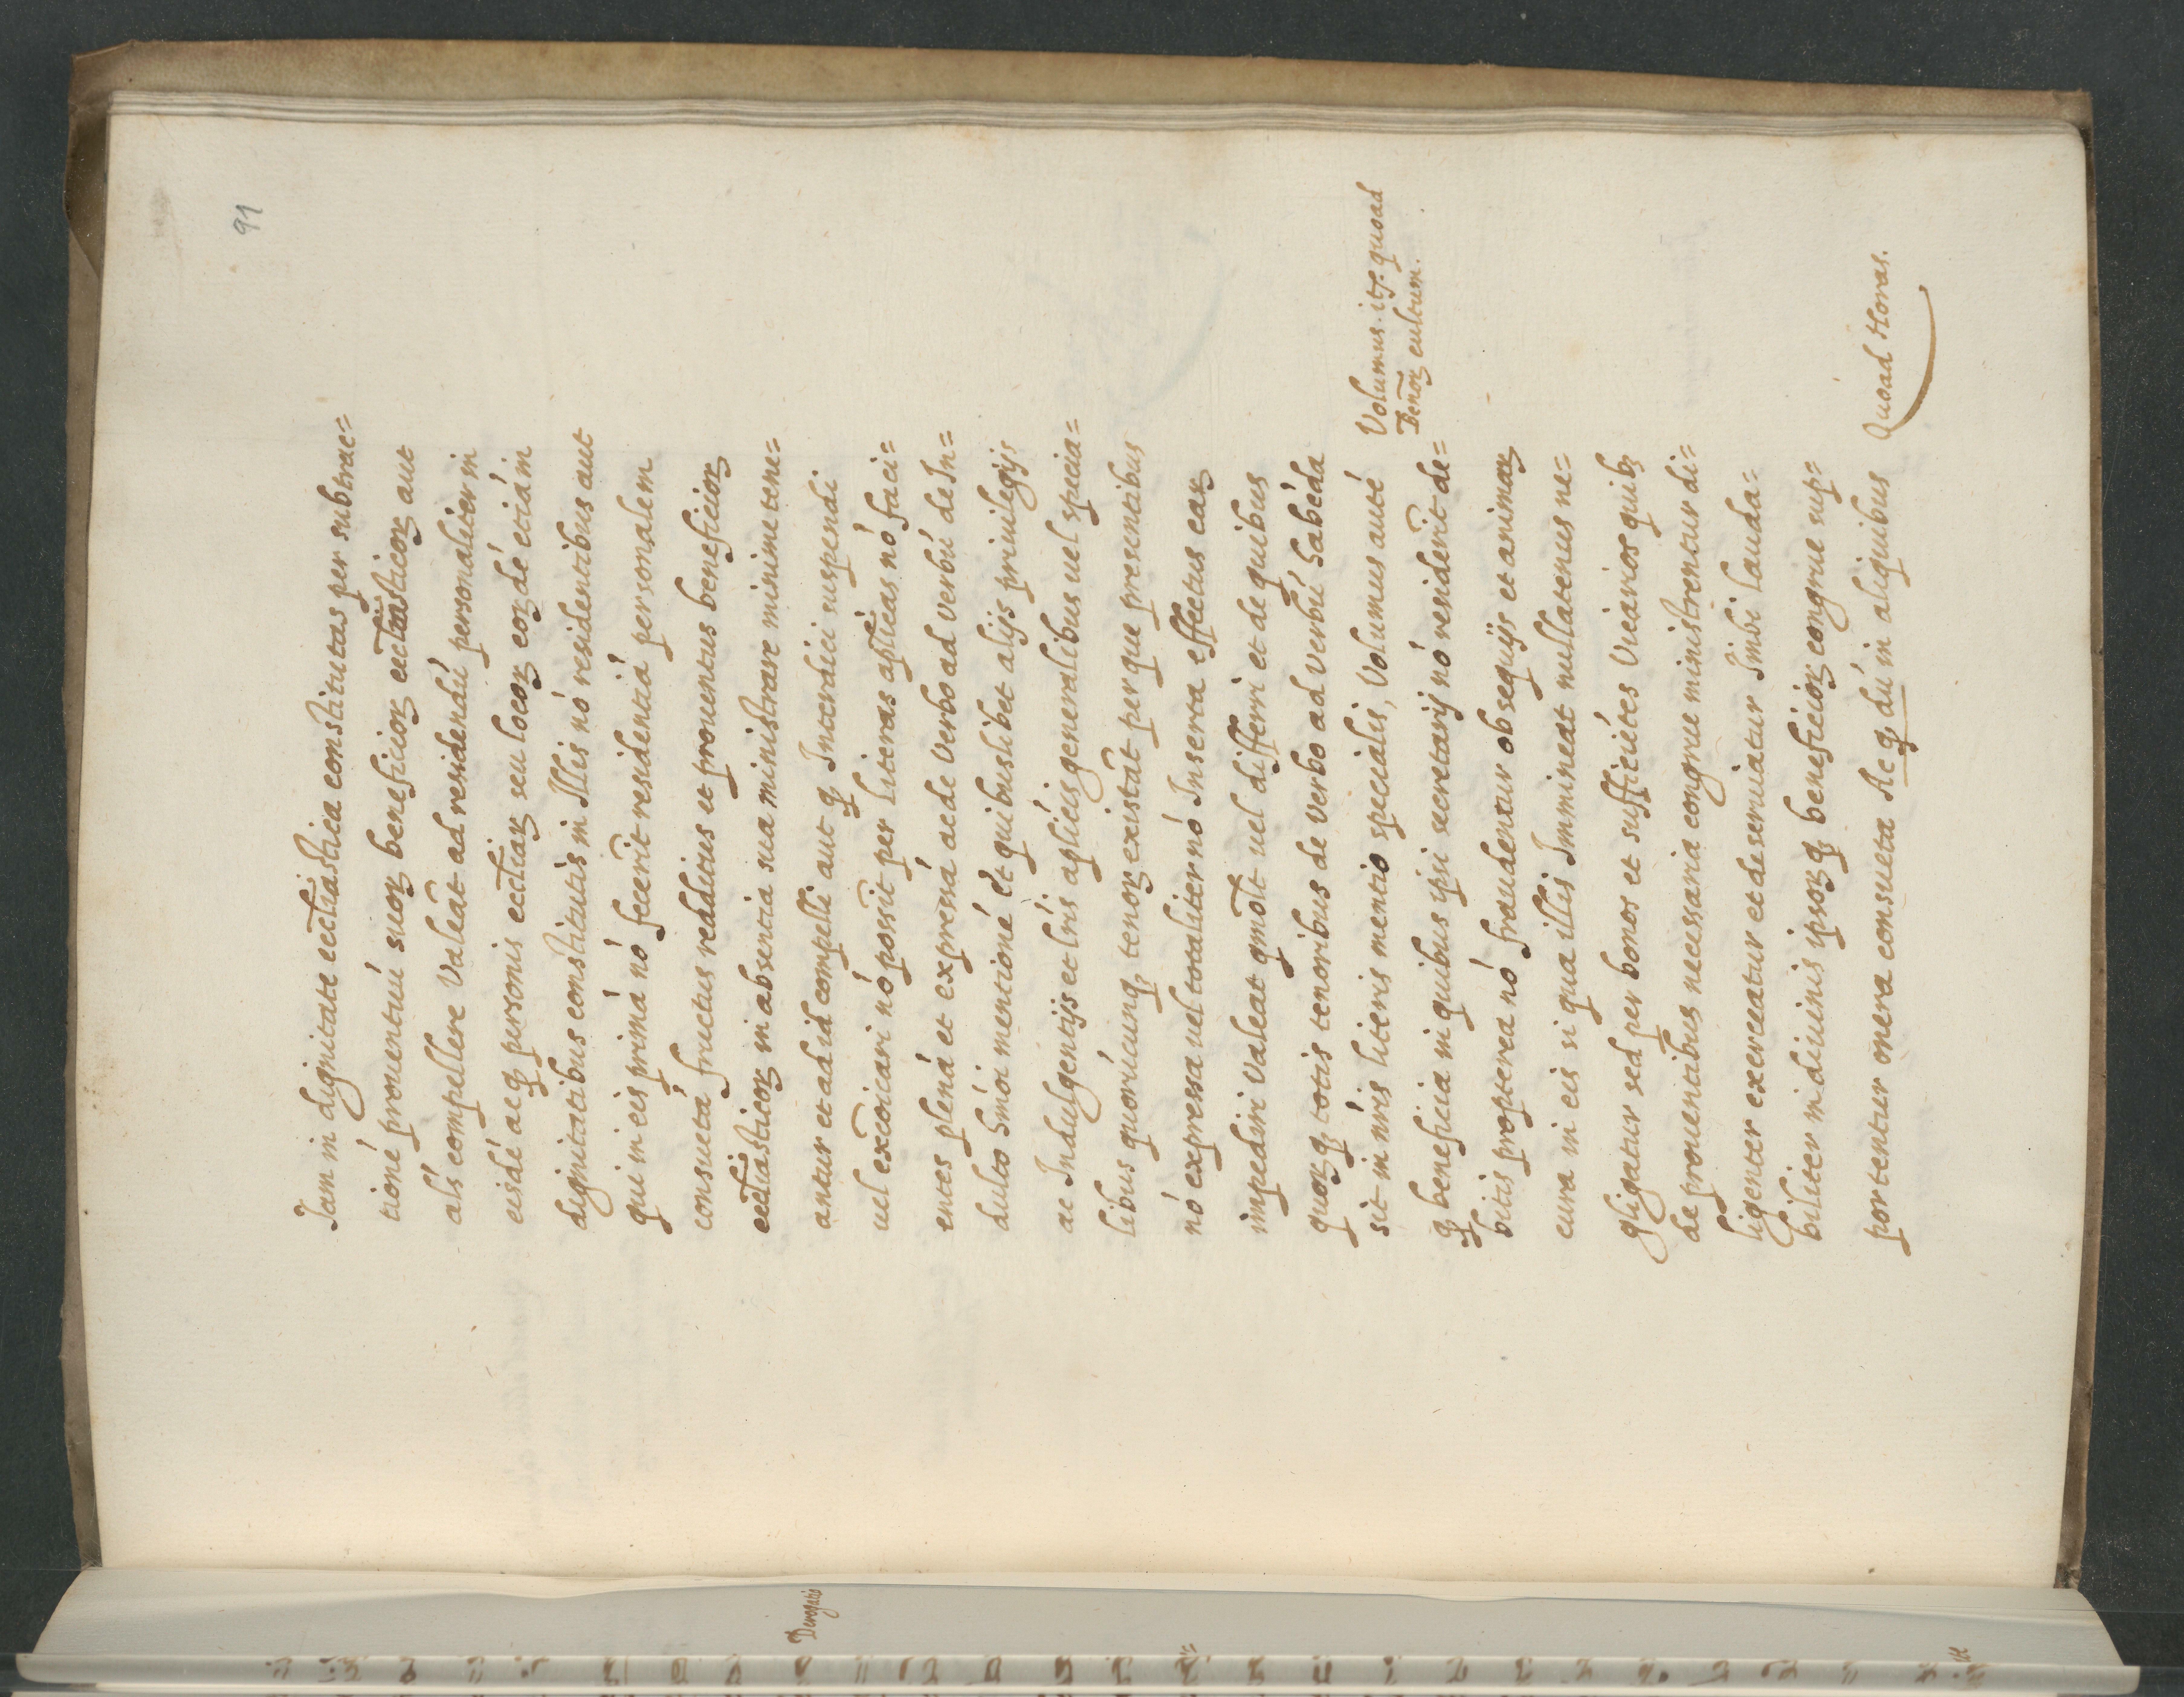 91
Iam in dignitate eccl̃iastica constitutas per subtrac=
tioné prouentuú suoꝝ beneficioꝝ eccl̃iasticoꝝ aut
als compellere Valeat̃ ad residendú personaliter in
eisdé ac ꝙ personis eccl̃iaꝝ seu locoꝝ eoꝝdé etiám
dignitatibus constitutis in Illis nó residentibus aut
qui in eis primá nó fecerit̃ residentiá personalem
consuetá fructus redditus et prouentus beneficioꝝ
eccl̃iasticoꝝ in absentia sua ministrare minime tene=
antur et ad id compelli aut ꝙ Interdici suspendi
uel excõicari nó possit̃ per Literas aplicas nó faci=
entes plená et expressá ac de Verbo ad Verbú de In=
dulto hm̃oi mentioné et quibuslibet alijs priuilegijs
ac Indulgentijs et lr̃is aplicis generalibus uel specia=
libus quorúcunqꝫ tenoꝝ existat̃ per que presentibus
nó expressa uel totaliter nó Inserta effectus eaꝝ
impediri Valeat qmõlt uel differri et de quibus
quoꝝqꝫ totis tenoribus de Verbo ad Verbú habéda
sit in nr̃is literis mentio specialis, Volumus auté
Volumus. itꝙ. quoad
Benoꝝ cultum.
ꝙ beneficia in quibus ipsi secretarij nó residerit̃ de=
bitis propterea nó fraudentur obsequijs et animaꝝ
cura in eis si qua illis Immineat nullatenus ne=
gligatur sed per bonos et sufficiétes Vicarios quibꝫ
de prouentibus necessaria congrue ministrentur di=
ligenter exerceatur et deseruiatur Inibi lauda=
biliter in diuinis ipsoꝝqꝫ beneficioꝝ congrue sup=
portentur onera consueta Ac ꝙ dú in aliquibus
Quoad Horas.
Derogatis